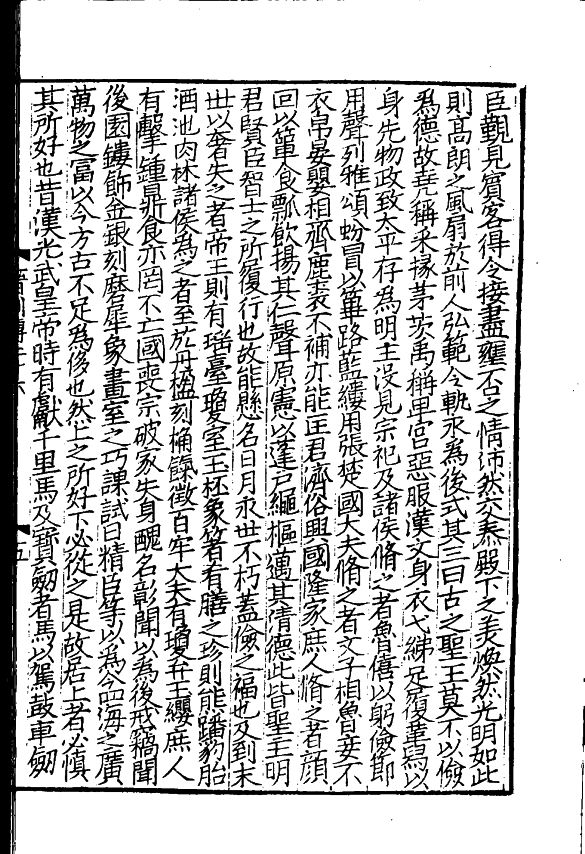 臣覲見賓客得令接盡壅否之情沛然交泰殿下之美煥然光明如此
則高朗之風扇於前人弘範令軌永為後式其三曰古之聖王莫不以儉
為德故堯稱采椽茅茨禹稱卑宮惡服漢文身衣弋綈足履革舄以
身先物政致太平存為明主沒見宗祀及諸侯脩之者魯僖以躬儉節
用聲列雅頌蚡冒以篳路藍縷用張楚國大夫脩之者文子相魯妾不
衣帛晏嬰相齊鹿裘不補亦能匡君濟俗興國隆家庶人脩之者顏
回以簞食瓢飲揚其仁聲原憲以蓬戶繩樞邁其清德此皆聖主明
君賢臣智士之所履行也故能懸名日月永世不朽蓋儉之福也及到末
世以奢失之者帝王則有瑤臺瓊室玉杯象箸有膳之珍則熊蹯豹胎
酒池肉林諸侯為之者至於丹楹刻桷餼徵百牢大夫有瓊弁玉纓庶人
有擊鍾鼎食亦罔不亡國喪宗破家失身醜名彰聞以為後戒竊聞
後園鏤飾金銀刻磨犀象畫室之巧課試日精臣等以為今四海之廣
萬物之富以今方古不足為侈也然上之所好下必從之是故居上者必慎
其所好也昔漢光武皇帝時有獻千里馬及寶劒者馬以駕鼓車劒
五